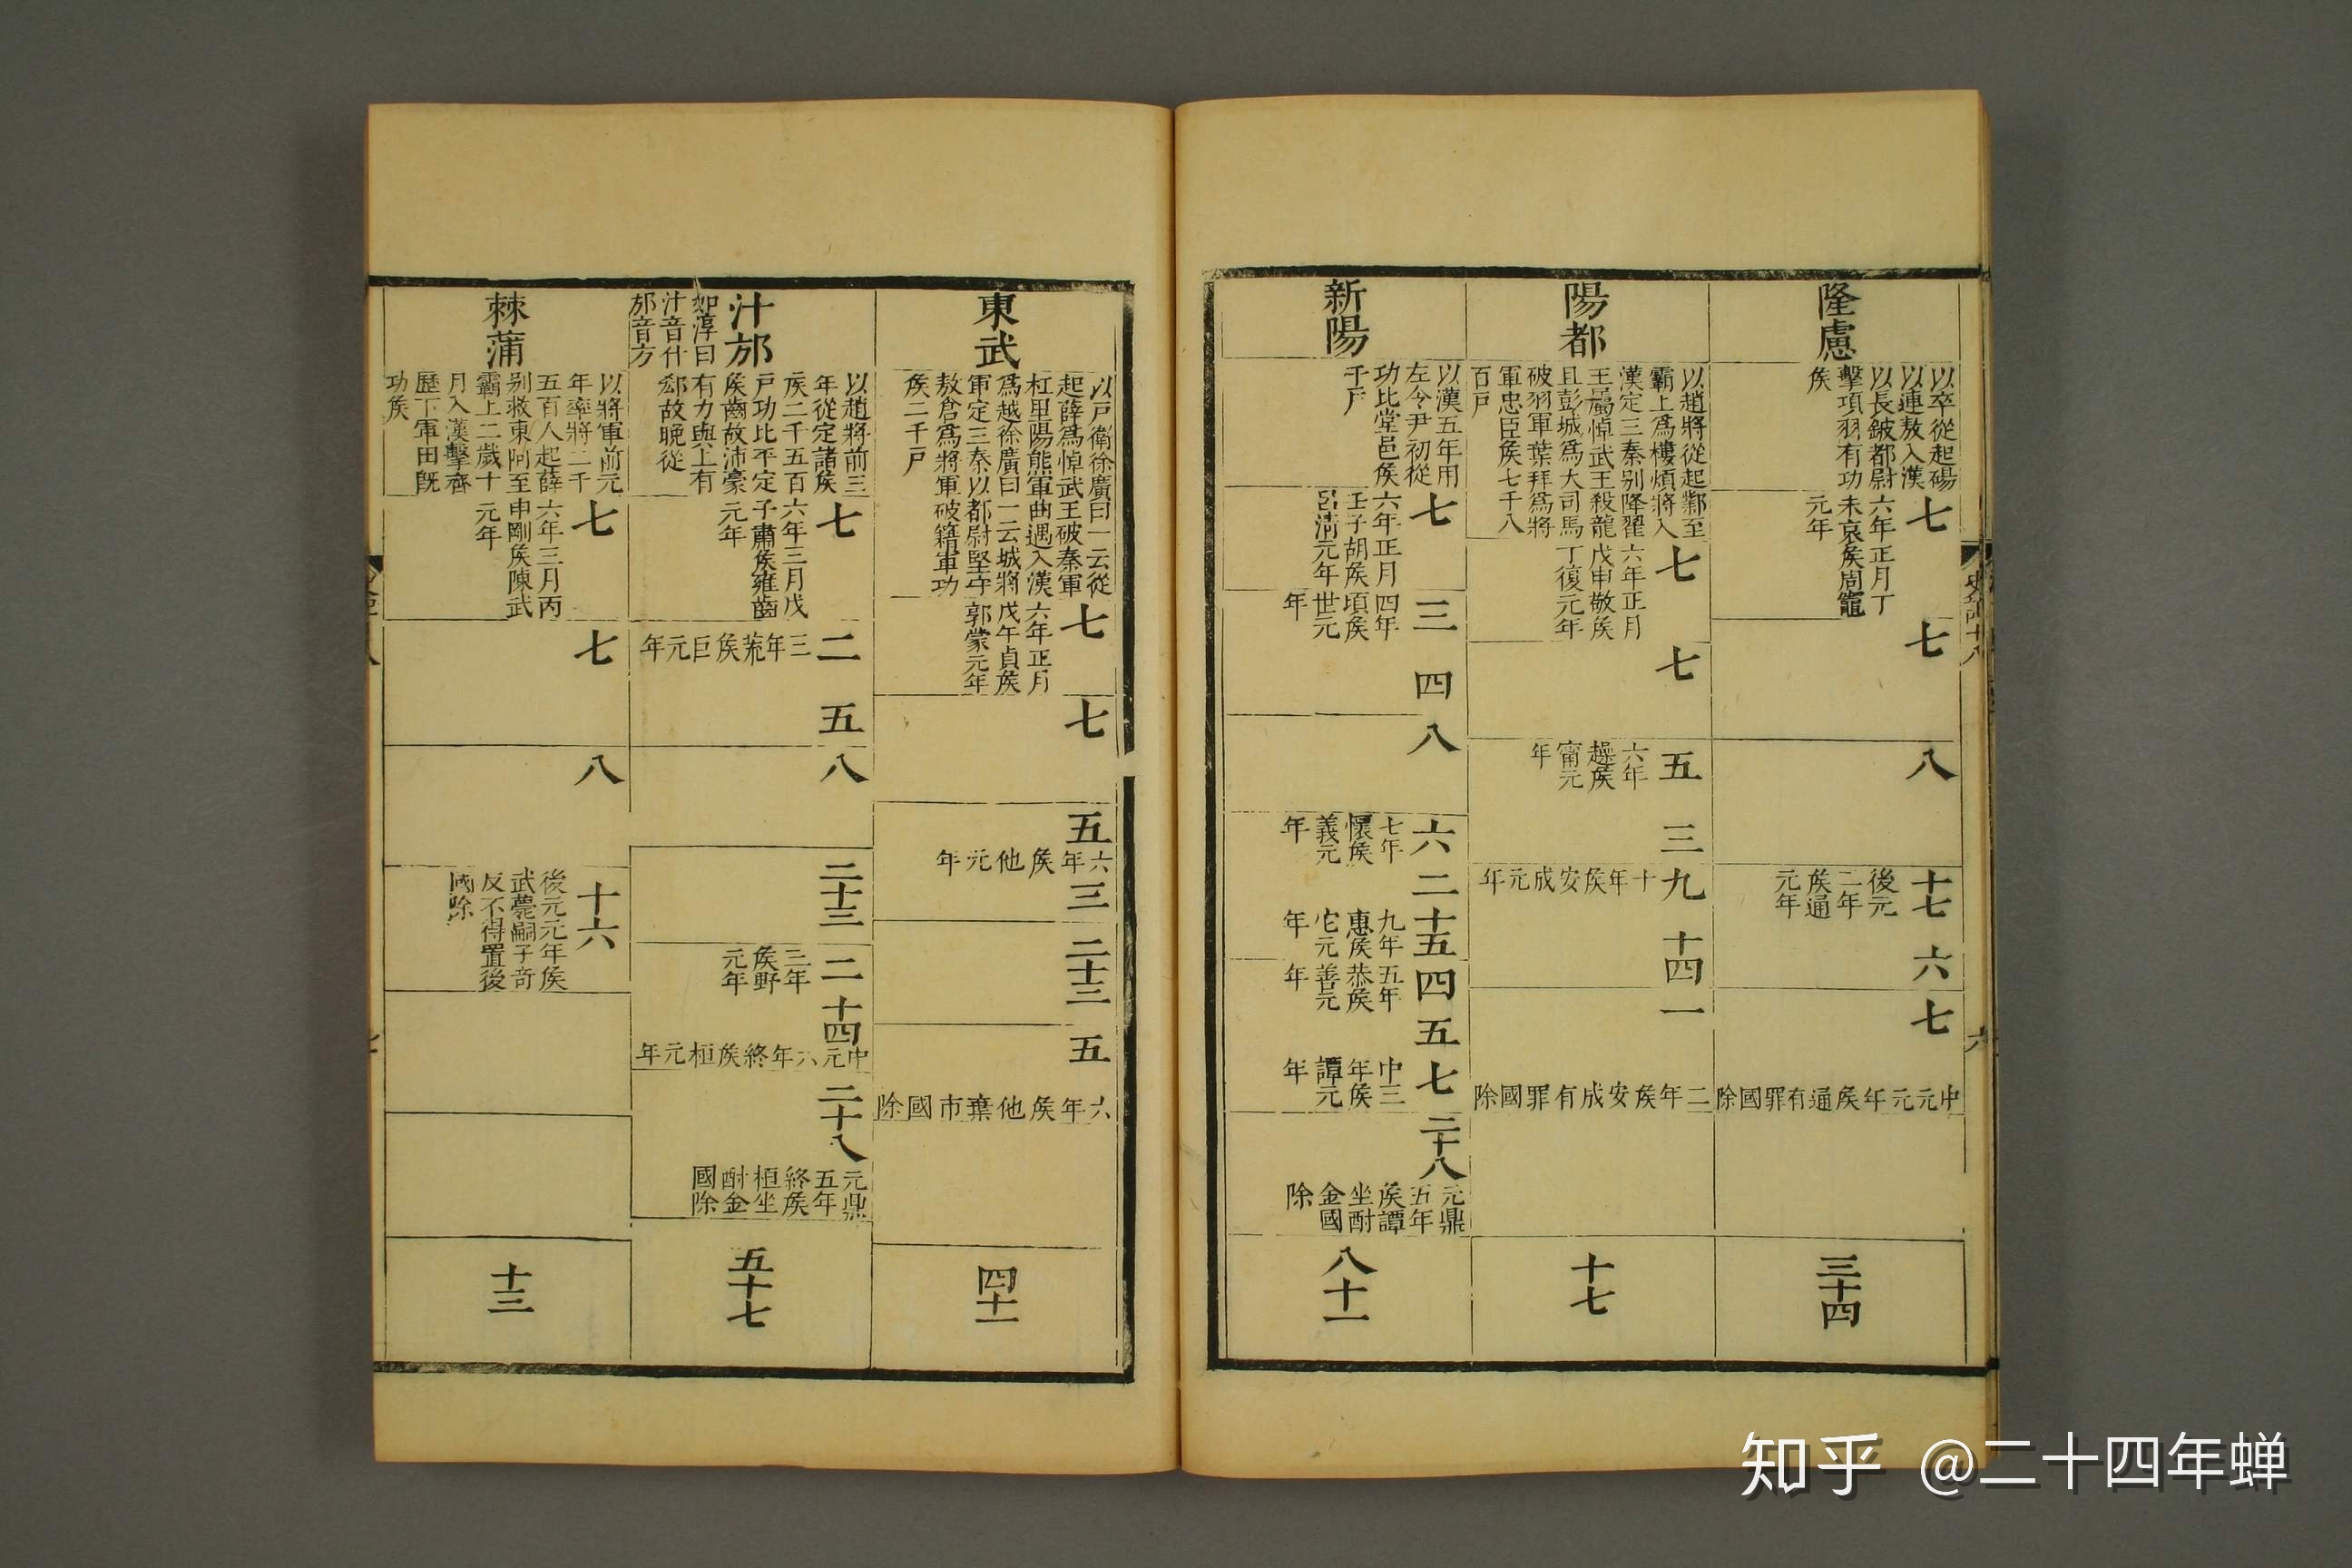 隆慮
以卒從起碭
以連敖入漢
以長鈹都尉
擊項羽有功
矦
七
六年正月丁
未哀矦周竈
元年
七
八
十七
後元
二年
矦通
元年
六
七
中元元年矦通有罪國除
三十四
陽都
以趙將從起鄴至
霸上爲樓煩將入
漢定三秦别降翟
王屬悼武王殺龍
且彭城爲大司馬
破羽軍葉拜爲將
軍忠臣矦七千八
百戸
七
六年正月
戊申敬矦
丁復元年
七
五
六年
趮矦
甯元
年
三
九
十年矦安成元年
十四
一
二年矦安成有罪國除
十七
新陽
以漢五年用
左令尹初從
功比堂邑矦
千戸
七
六年正月
壬子胡矦
呂淸元年
三
四年
頃矦
世元
年
四
八
六
七年
懷矦
義元
年
二
十五
九年
惠矦
它元
年
四
五年
恭矦
善元
年
五
七
中三
年矦
譚元
年
二十八
元鼎
五年
矦譚
坐酎
金國
除
八十一
東武
以戸衛徐廣曰一云從
起薛爲悼武王破秦軍
杠里陽熊軍曲遇入漢
爲越徐廣曰一云城將
軍定三秦以都尉堅守
敖倉爲將軍破籍軍功
矦二千戸
七
六年正月
戊午貞矦
郭蒙元年
七
五
六年矦他元年
三
二十三
五
六年矦他棄市國除
四十一
汁邡
如淳曰
汁音什
邡音方
以趙將前三
年從定諸矦
矦二千五百
戸功比平定
矦齒故沛豪
有力與上有
郄故晚從
七
六年三月戊
子肅矦雍齒
元年
二
三年荒矦巨元年
五
八
二十三
二
三年
矦野
元年
十四
中元六年終矦桓元年
二十八
元鼎
五年
終矦
桓坐
酎金
國除
五十七
棘蒲
以將軍前元
年率將二千
五百人起薛
别救東阿至
霸上二歲十
月入漢擊齊
歷下軍田旣
功矦
七
六年三月丙
申剛矦陳武
元年
七
八
十六
後元元年矦
武薨嗣子奇
反不得置後
國除
十三
知乎 @二十四年蝉